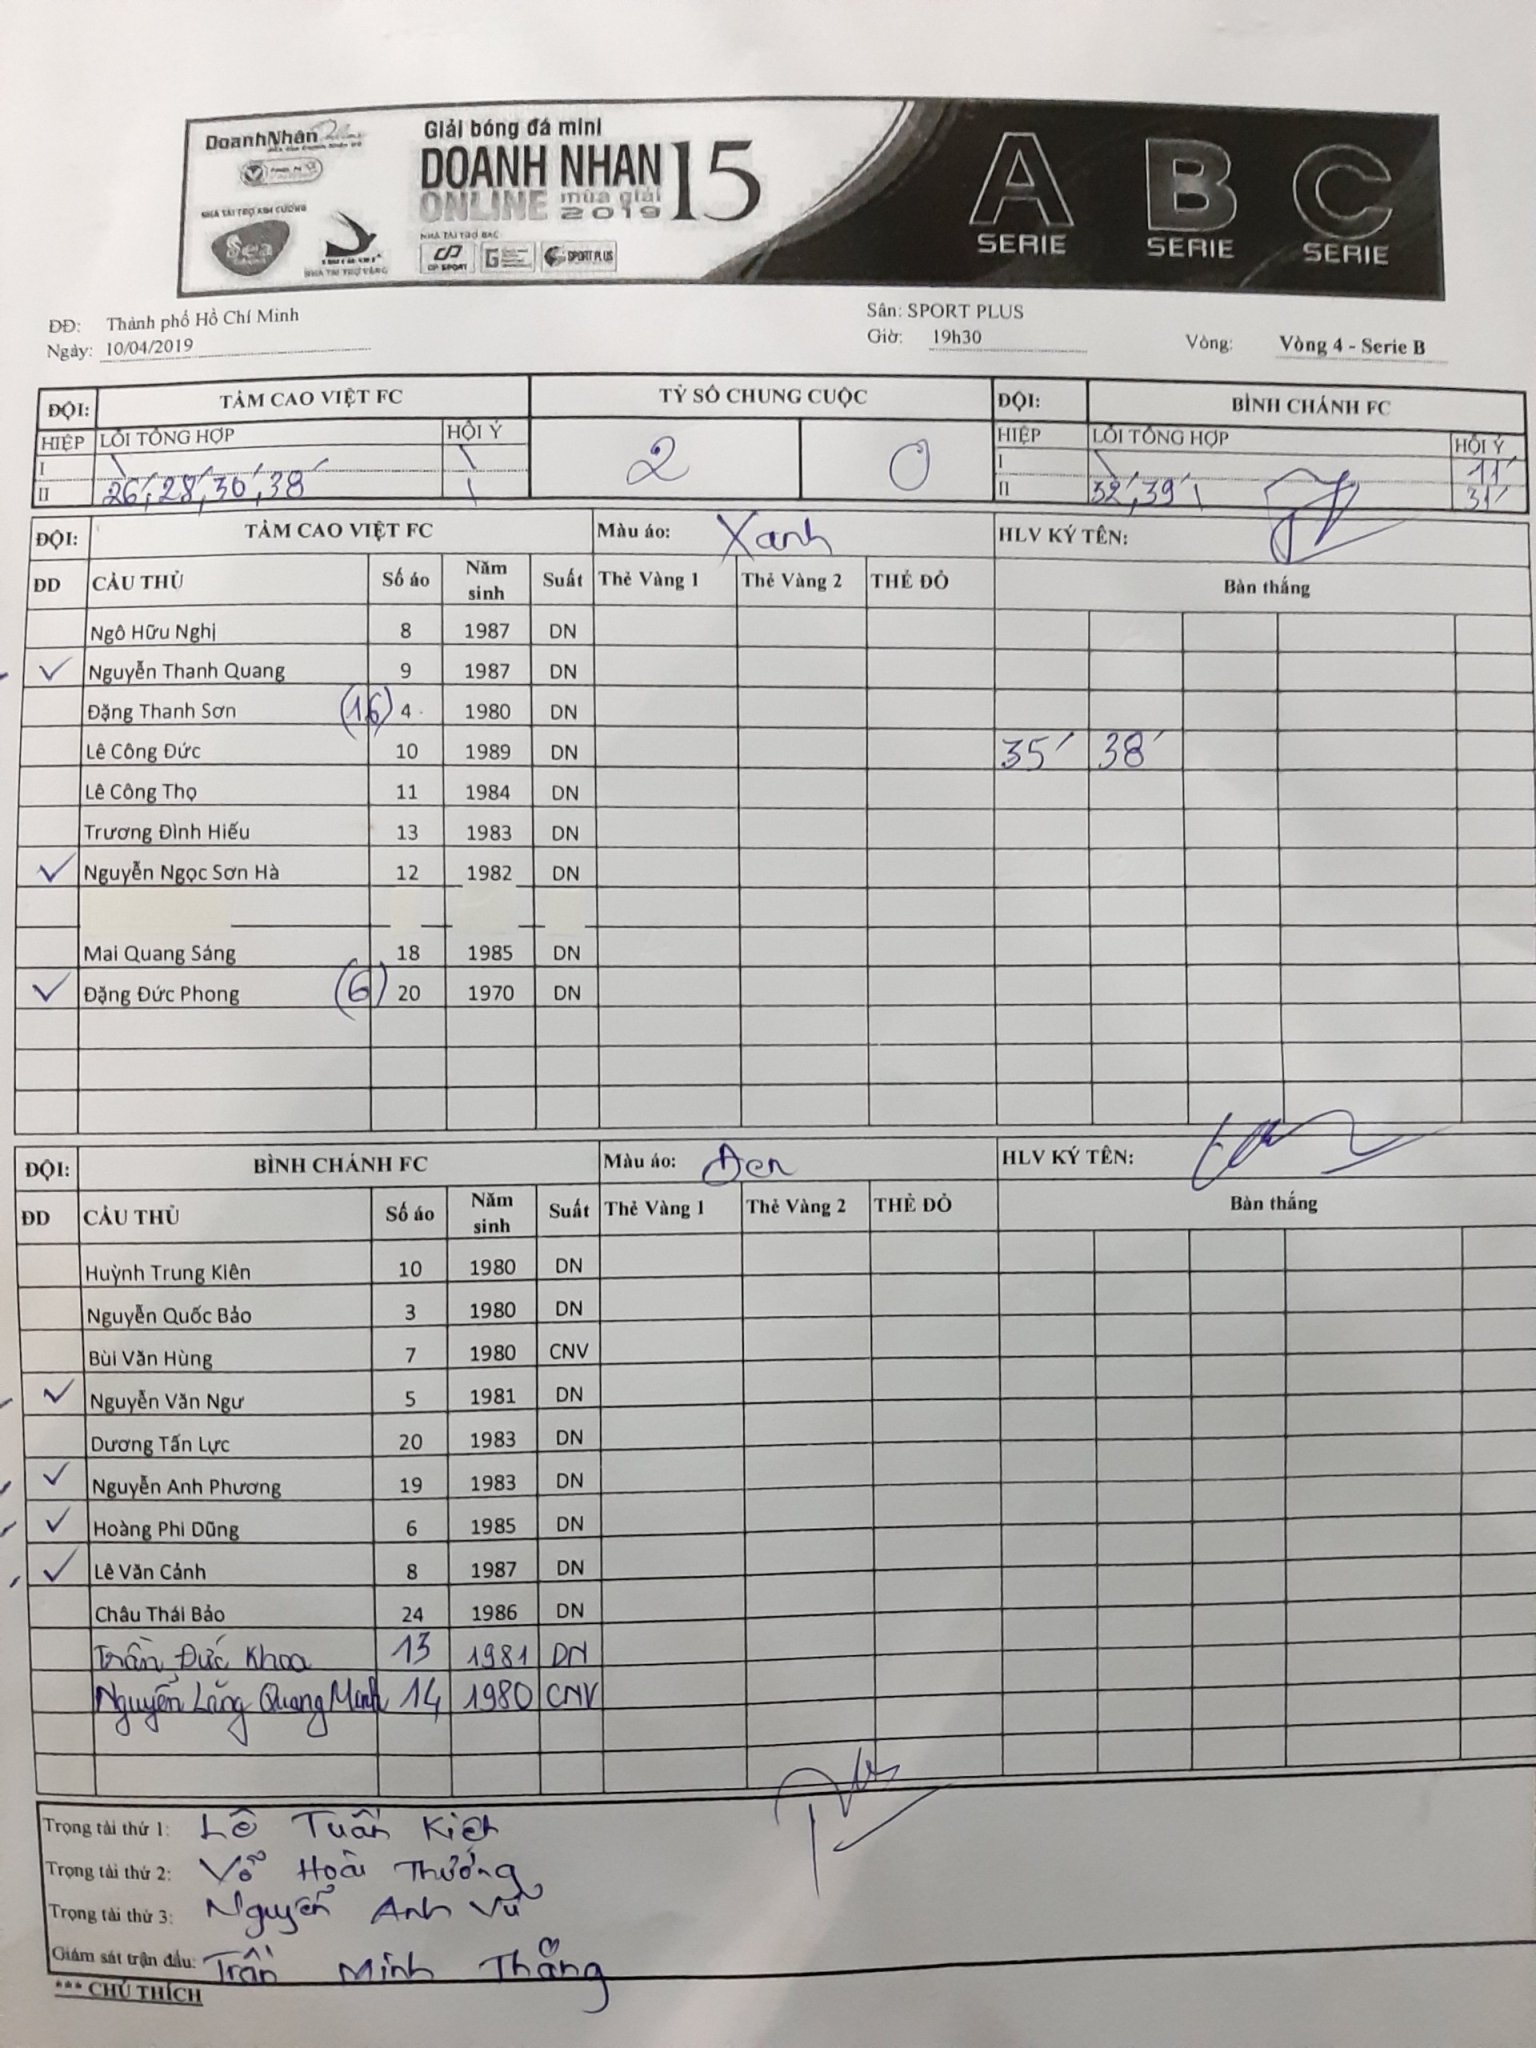 DoanhNhân
Giải bóng đá mini
DOANH NHAN 15
ONLINE mùa giải 2019
NHÀ TÀI TRỢ KIM CƯƠNG
Sea
NHÀ TÀI TRỢ VÀNG
NHÀ TÀI TRỢ BẠC
CP SPORT
SPORT PLUS
A SERIE
B SERIE
C SERIE
ĐĐ: Thành phố Hồ Chí Minh
Sân: SPORT PLUS
Ngày: 10/04/2019 Giờ: 19h30 Vòng: Vòng 4 - Serie B
ĐỘI: TẦM CAO VIỆT FC TỶ SỐ CHUNG CUỘC ĐỘI: BÌNH CHÁNH FC
HIỆP LỖI TỔNG HỢP HỘI Ý 2 0 HIỆP LỖI TỔNG HỢP HỘI Ý
I \ \ I \ 11'
II 26', 28', 36', 38' \ II 32', 39' \ 31'
ĐỘI: TẦM CAO VIỆT FC Màu áo: Xanh HLV KÝ TÊN:
ĐD CẦU THỦ Số áo Năm sinh Suất Thẻ Vàng 1 Thẻ Vàng 2 THẺ ĐỎ Bàn thắng
Ngô Hữu Nghị 8 1987 DN
✓ Nguyễn Thanh Quang 9 1987 DN
Đặng Thanh Sơn (16) 4 1980 DN
Lê Công Đức 10 1989 DN 35' 38'
Lê Công Thọ 11 1984 DN
Trương Đình Hiếu 13 1983 DN
✓ Nguyễn Ngọc Sơn Hà 12 1982 DN
Mai Quang Sáng 18 1985 DN
✓ Đặng Đức Phong (6) 20 1970 DN
ĐỘI: BÌNH CHÁNH FC Màu áo: Đen HLV KÝ TÊN:
ĐD CẦU THỦ Số áo Năm sinh Suất Thẻ Vàng 1 Thẻ Vàng 2 THẺ ĐỎ Bàn thắng
Huỳnh Trung Kiên 10 1980 DN
Nguyễn Quốc Bảo 3 1980 DN
Bùi Văn Hùng 7 1980 CNV
✓ Nguyễn Văn Ngư 5 1981 DN
Dương Tấn Lực 20 1983 DN
✓ Nguyễn Anh Phương 19 1983 DN
✓ Hoàng Phi Dũng 6 1985 DN
✓ Lê Văn Cảnh 8 1987 DN
Châu Thái Bảo 24 1986 DN
Trần Đức Khoa 13 1981 DN
Nguyễn Lăng Quang Minh 14 1980 CNV
Trọng tài thứ 1: Lê Tuấn Kiệt
Trọng tài thứ 2: Võ Hoài Thương
Trọng tài thứ 3: Nguyễn Anh Vũ
Giám sát trận đấu: Trần Minh Thắng
*** CHÚ THÍCH